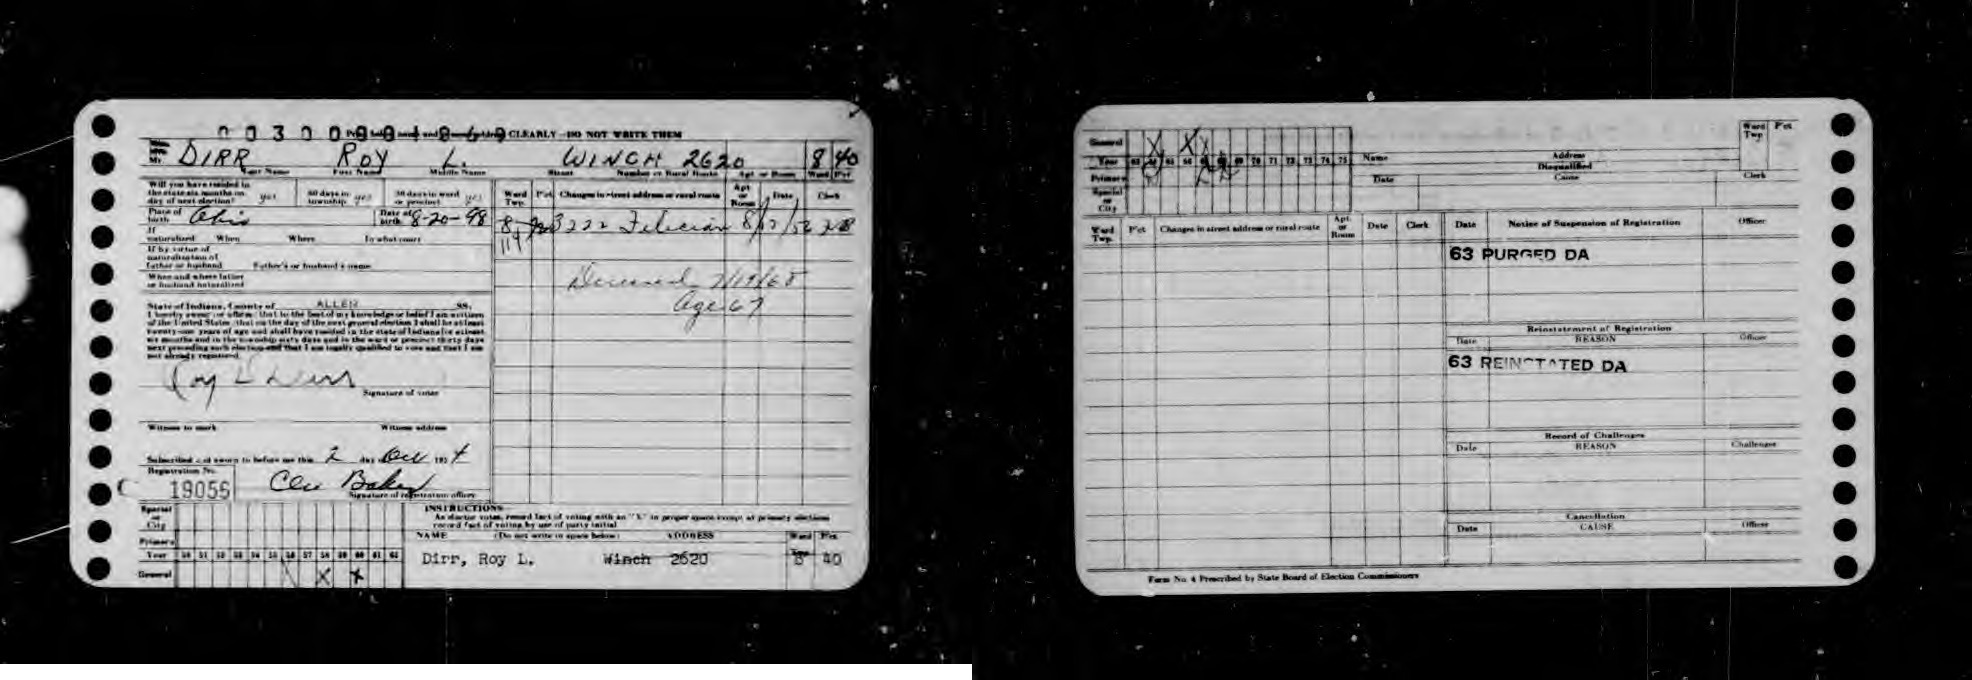 CLEARLY—DO NOT WRITE THEM
Mr. DIRR ROY L. WINCH 2620 8 40
Last Name First Name Middle Name Street Number or Rural Route Apt. or Room Ward Pct
Will you have resided in the state six months on day of next election? yes 60 days in township yes 30 days in ward or precinct yes
Ward Twp. Pct. Changes in street address or rural route Apt. or Room Date Clerk
Place of birth Ohio Date of birth 8-20-98
8 3222
119
If naturalized When Where In what court
If by virtue of naturalization of father or husband Father's or husband's name
When and where father or husband naturalized
Deceased
Age 67
State of Indiana, County of ALLEN SS.
I hereby swear (or affirm) that to the best of my knowledge or belief I am a citizen
of the United States; that on the day of the next general election I shall be at least
twenty-one years of age and shall have resided in the state of Indiana for at least
six months and in the township sixty days and in the ward or precinct thirty days
next preceding such election and that I am legally qualified to vote and that I am
not already registered.
Roy L Dirr
Signature of voter
Witness to mark Witness address
Subscribed and sworn to before me this 2 day
Registration No.
19056 Baker
Signature of registration officer
Special or City
Primary
Year 50 51 52 53 54 55 56 57 58 59 60 61 62
General X X
INSTRUCTIONS
As elector votes, record fact of voting with an "X" in proper space except at primary elections
record fact of voting by use of party initial
NAME (Do not write in space below) ADDRESS Ward Twp. Pct.
Dirr, Roy L. Winch 2620 8 40
General X X
Year 63 64 65 66 67 68 69 70 71 72 73 74 75
Primary
Special or City
Name Address Ward Twp Pct.
Disqualified
Date Cause Clerk
Ward Twp. Pct. Changes in street address or rural route Apt. or Room Date Clerk
Date Notice of Suspension of Registration Officer
63 PURGED DA
Reinstatement of Registration
Date REASON Officer
63 REINSTATED DA
Record of Challenges
Date REASON Challenger
Cancellation
Date CAUSE Officer
Form No. 4 Prescribed by State Board of Election Commissioners